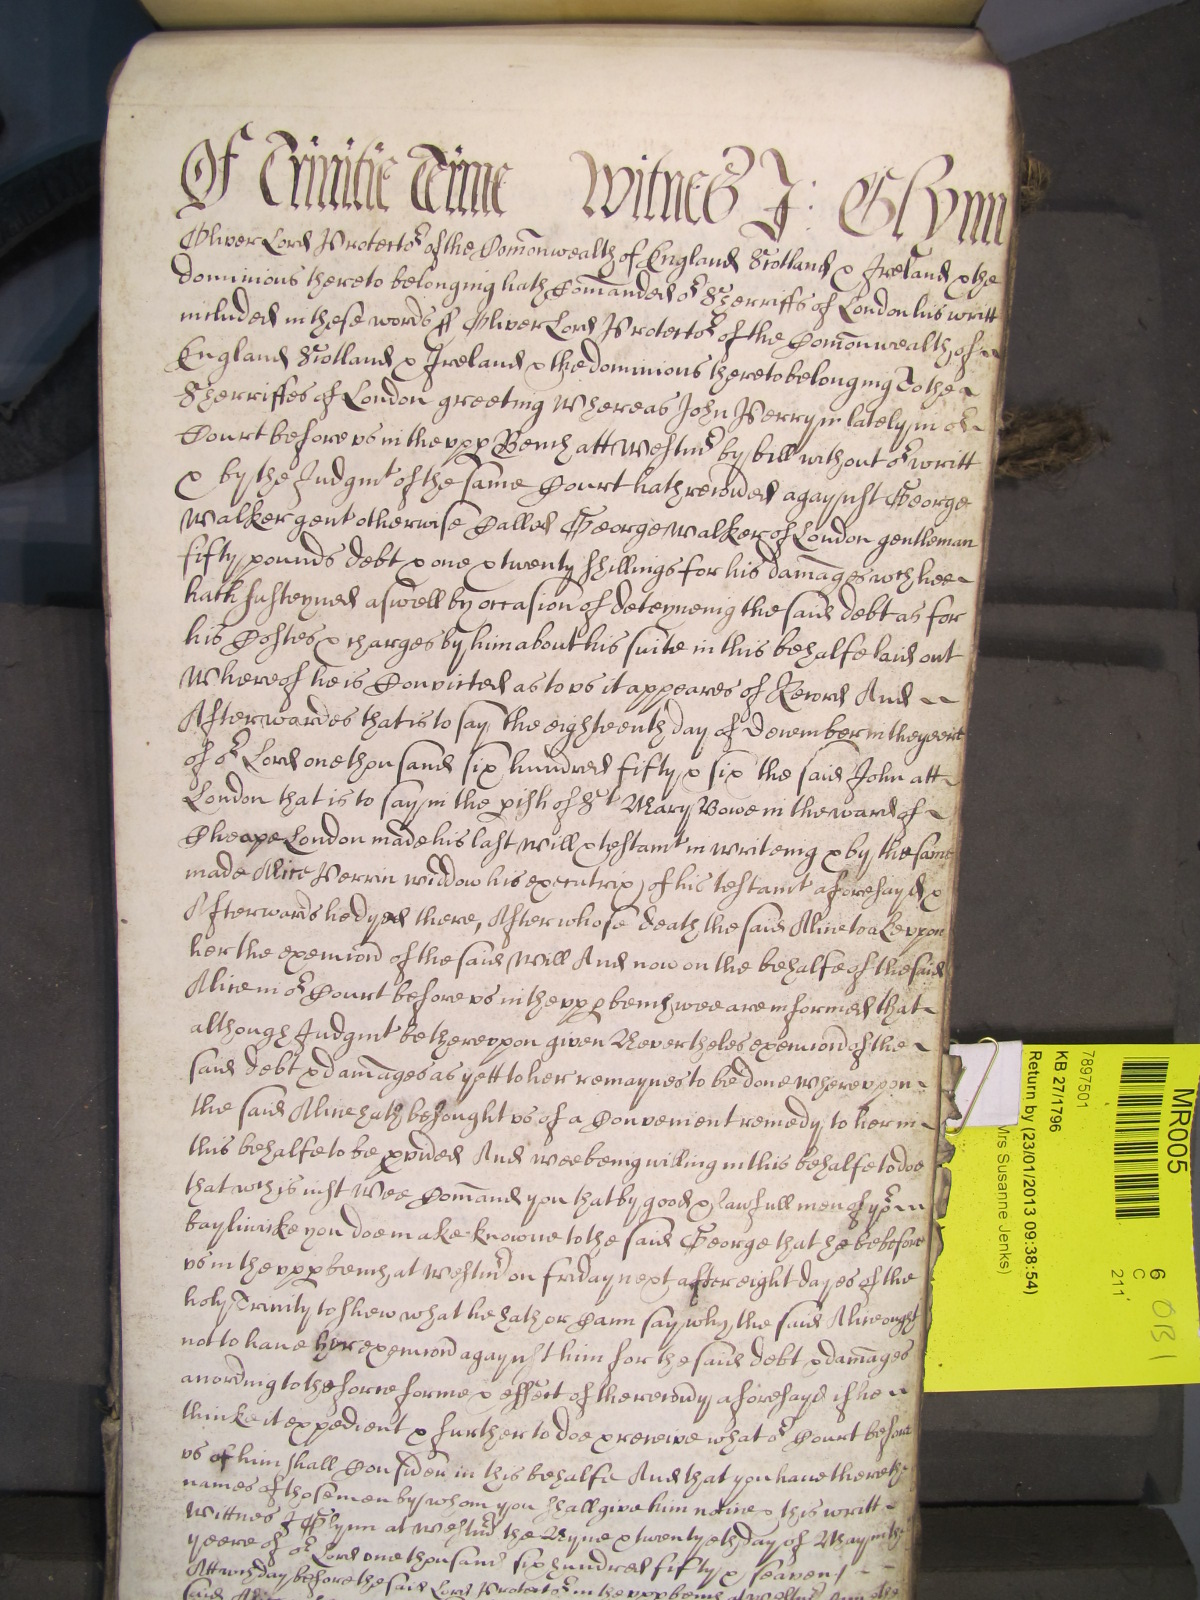 Of Trinitie Tirme Witnes J: Glynn
Oliver Lord Protecto^r of the Com̄onwealth of England Scotland & Ireland & the
dominions thereto belonging hath Com̄anded o^r Sherriffs of London his writt
included in these words ff Oliver Lord Protecto^r of the Com̄onwealth of
England Scotland & Ireland & the dominions thereto belonging To the
Sherriffes of London greeting Whereas John Perryn lately in o^r
Court before vs in the vpp Bench att Westm^r by bill without o^r writt
& by the Judgm^t of the same Court hath recouered agaynst George
Walker gent otherwise Called George Walker of London gentleman
fifty pounds debt & one & twenty shillings for his dam̄ages w^ch hee
hath susteyned aswell by occasion of deteyneing the said debt as for
his Costes & charges by him about his suite in this behalfe laid out
Whereof he is Convicted as to vs it appeares of Record And
Afterwardes that is to say the eighteenth day of December in the yeere
of o^r Lord one thousand six hundred fifty & six the said John att
London that is to say in the pish of S^t Mary Bowe in the ward of
Cheape London made his last will & testam^t in writeing & by the same
made Alice Perrin widdow his executrix of his testam^t aforesayd &
Afterwards he dyed there, After whose death the said Alice tooke vpon
her the execucion of the said Will And now on the behalfe of the said
Alice in o^r Court before vs in the vpp bench wee are informed that
although Judgm^t be therevpon given Nevertheles execucion of the
said debt & dam̄ages as yett to her remaynes to be done wherevpon
the said Alice hath besought vs of a Convenient remedy to her in
this behalfe to be pvided And wee being willing in this behalfe to doe
that w^ch is iust Wee Com̄and you that by good & lawfull men of yo^r
bayliwike you doe make knowne to the said George that he be before
vs in the vpp bench at Westm^r on friday next after eight dayes of the
holy Trinity to shew what he hath or Cann say why the said Alice ought
not to haue her execucion agaynst him for the said debt & dam̄ages
according to the force forme & effect of the recouy aforesayd if he
thinke it expedient & further to doe & receive what o^r Court before
vs of him shall Consider in this behalfe And that you haue there the
names of those men by whom you shall give him notice & this writt
Wittnes J Glynn at Westm^r the Nyne & twentyeth day of May in the
yeere of o^r Lord one thousand six hundred fifty & seaven
Att w^ch day before the said Lord Protecto^r in the vpp bench at Westm^r
said
MR005
6
C
211'
OB1
7897501
KB 27/1796
Return by (23/01/2013 09:38:54)
Mrs Susanne Jenks)